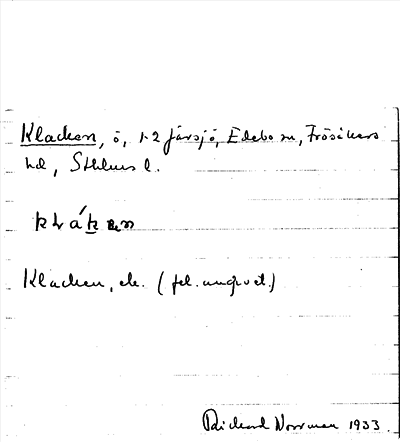 Klacken, ö, 1-2 Järsjö, Edebo sn, Frösåkers
hd, Sthlms l.
Klacken, ek. (fel. uppr. et.)
Rickard Norrman 1933.